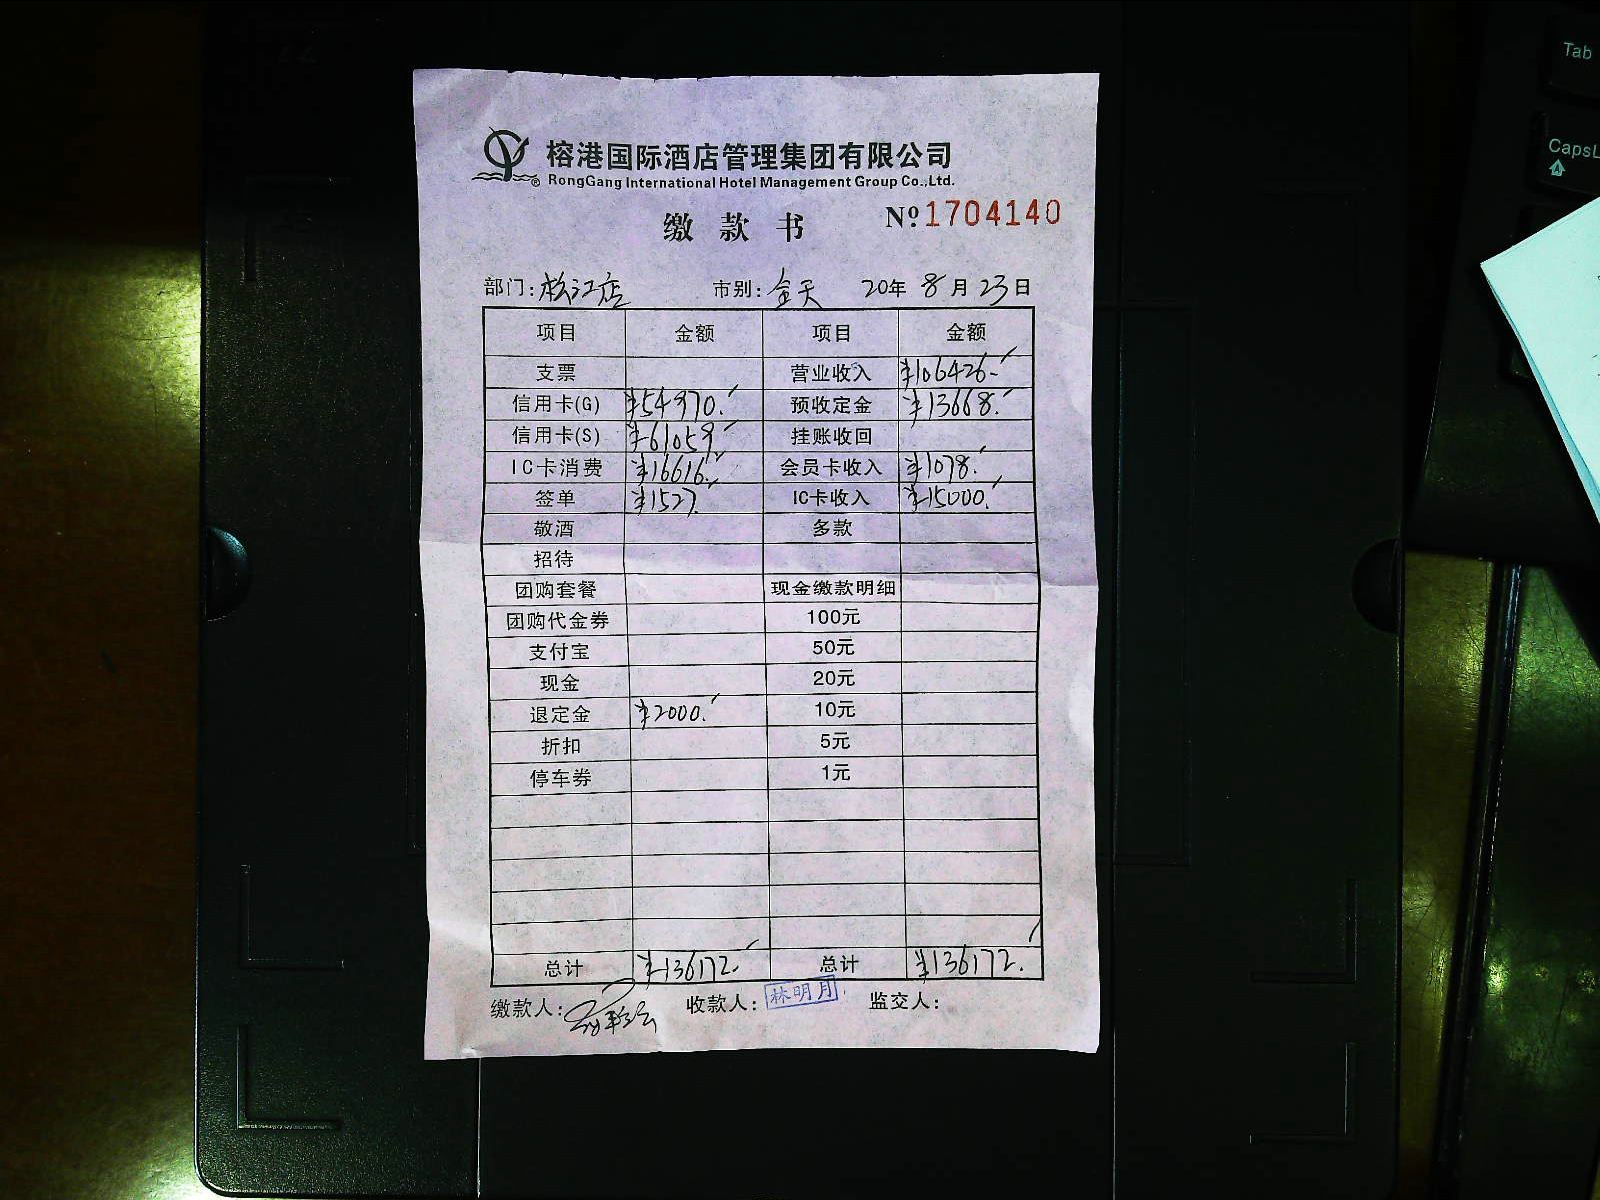 榕港国际酒店管理集团有限公司
®RongGang International Hotel Management Group Co.,Ltd.
缴款书 №1704140
部门:松江店 市别:全天 20年 8月 23日
项目 金额 项目 金额
支票 营业收入 ¥106426.
信用卡(G) ¥54970. 预收定金 ¥13668.
信用卡(S) ¥61059 挂账收回
IC卡消费 ¥16616. 会员卡收入 ¥1078.
签单 ¥1527. IC卡收入 ¥15000.
敬酒 多款
招待
团购套餐 现金缴款明细
团购代金券 100元
支付宝 50元
现金 20元
退定金 ¥2000. 10元
折扣 5元
停车券 1元
总计 ¥136172. 总计 ¥136172.
缴款人: 收款人:林明月 监交人:
Tab
CapsL